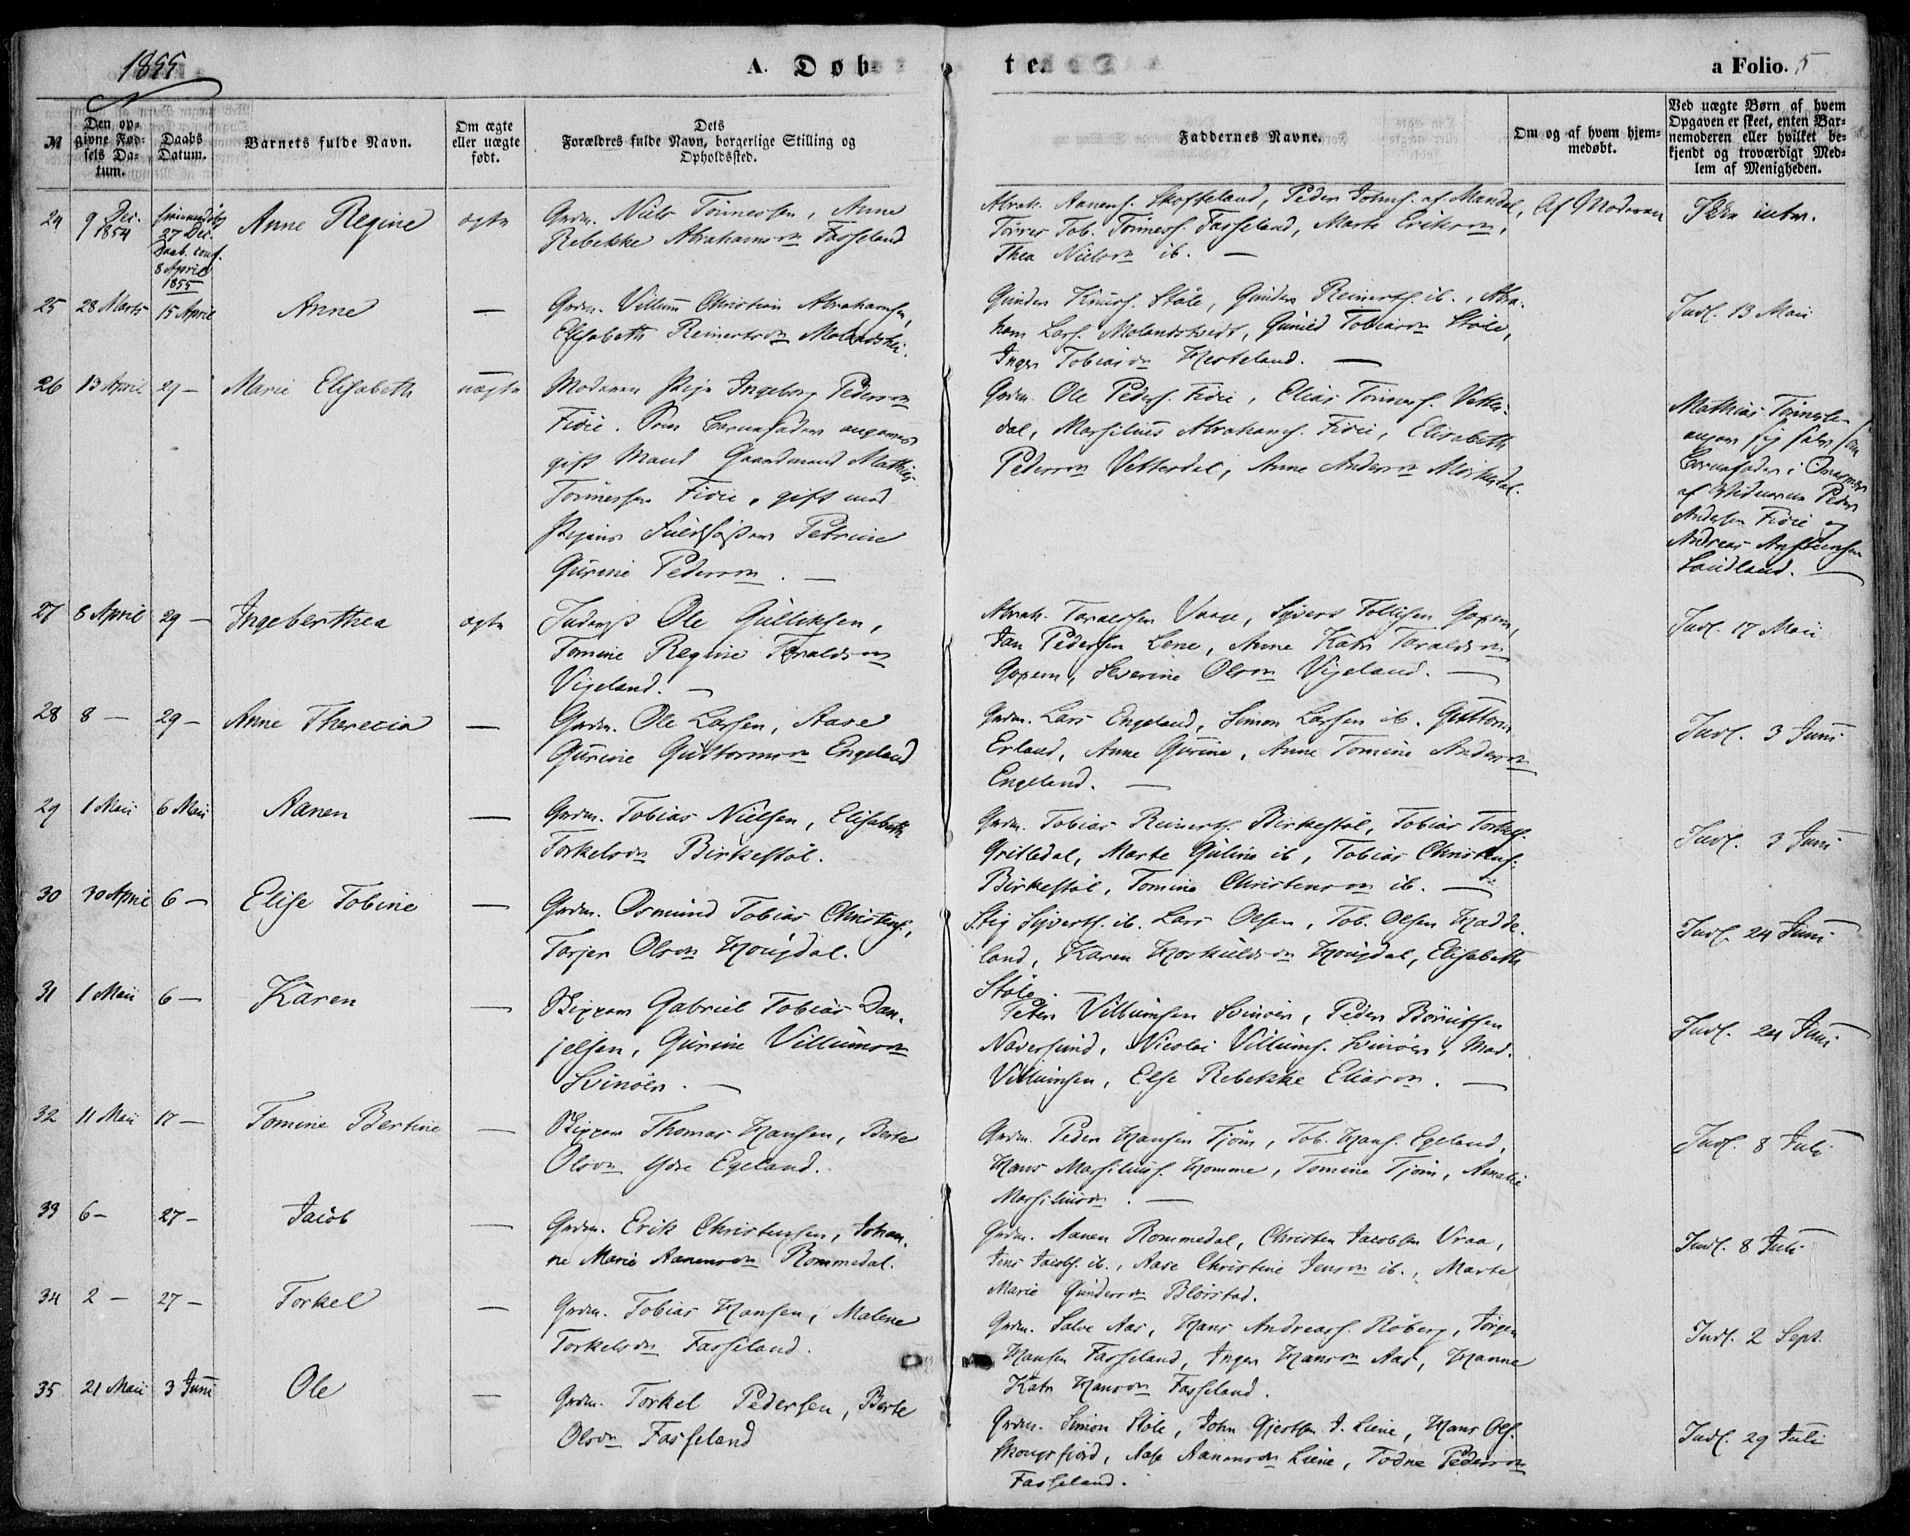 1855
A. Døb
te.
a Folio. 5
№
Den op-
givne Fød-
sels Da-
tum.
Daabs
Datum.
Barnets fulde Navn.
Om ægte
eller uægte
født.
Dets
Forældres fulde Navn, borgerlige Stilling og
Opholdssted.
Faddernes Navne.
Om og af hvem hjem-
medøbt.
Ved uægte Børn af hvem
Opgaven er skeet, enten Bar-
nemoderen eller hvilket be-
kjendt og troværdigt Med-
lem af Menigheden.
24
9 Dec.
1854
hjemmedøbt
27 Dec.
Daab. conf.
8 April
1855
Anne Regine
ægte
Grdm. Niels Tönnessen, Anne
Rebekke Abrahamsdn Fasseland
Abrah. Aanens. Skoffeland, Peder Johns. af Mandal,
Tob. Tönness. Fasseland, Marte Eriksdn,
Thea Nielsdn ib. —
Af Moderen
Ikke intr.
25
28 Marts
15 April
Anne
—
Grdm. Villum Christian Abrahamsen,
Elisabeth Reinertsdn Molandshei.
Gunder Knuds. Støle, Gunder Reinerts. ib., Abra-
ham Lars. Molandstvedt, Gunild Tobiasdn Støle,
Inger Tobiasdn Hesteland. —
Indl. 13 Maii
26
13 April
29 —
Marie Elisabeth
uægte
Moderen Pige Ingeborg Pedersdn
Fidie. Som Barnefader angaves
gift Mand Gaardmand Mathias
Tönnessen Fidie, gift med
Pigens Petrine
Gurine Pedersdn. —
Grdm. Ole Peders. Fidie, Elias Tönness. Vetter-
dal, Marsilius Abrahams. Fidie, Elisabeth
Pedersdn Vetterdal, Anne Andersdn
Mathias Tönnessen
angav sig selv som
Barnefader i Overvær
af Vidnerne Peder
Andersen Fidie og
Andreas
Laudland. —
27
8 April
29 —
Ingeberthea
ægte
Inderst Ole Gulliksen,
Tomine Regine Taraldsdn
Vigeland. —
Abrah. Taraldsen Vaage, Syvert Tollisen Goxem,
Jan Pedersen Lene, Anne Katr. Taraldsdn
Goxem, Severine Olsdn Vigeland. —
Indl. 17 Maii
28
8 —
29 —
Anne Therecia
—
Grdm. Ole Larsen, Aase
Gurine Guttormsdn Engeland
Grdm. Lars Engeland, Simon Larsen ib. Guttorm
Erland, Anne Gurine, Anne Tomine Andersdn
Engeland. —
Indl. 3 Juni
29
1 Maii
6 Maii
Aanen
—
Grdm. Tobias Nielsen, Elisabeth
Torkelsdn Birkestøl.
Grdm. Tobias Reinerts. Birkestøl, Tobias Torkels.
Gritledal, Marte Guline ib, Tobias Christens.
Birkestøl, Tomine Christensdn ib. —
Indl. 3 Juni
30
30 April
6 —
Elise Tobine
—
Grdm. Osmund Tobias Christens.,
Torjer Olsdn Hougdal.
Stig Syverts. ib. Lars Olsen, Tob. Olsen Hadde-
land, Karen Hoskuldsdn Hougdal, Elisabeth
Støle. —
Indl. 24 Juni
31
1 Maii
6 —
Karen
—
Skipper Gabriel Tobias Dan-
jelsen, Gurine Villumsdn
Svinöer. —
Peter Villumsen Svinöer, Peder Börüssen
Naversund, Nicolai Villums. Svinöer, Mad.
Villumsen, Else Rebekke Eliasdn. —
Indl. 24 Juni
32
11 Maii
17 —
Tomine Bertine
—
Skipper Thomas Hansen, Berte
Olsdn Ydre Egeland.
Grdm. Peder Hansen Tjöm, Tob. Hans. Egeland,
Hans Marsilius. Homme, Tomine Tjöm, Amalie
Marsiliusdn. —
Indl. 8 Juli
33
6 —
27 —
Jacob
—
Grdm. Erik Christensen, Johan-
ne Marie Aanensdn Rommedal.
Grdm. Aanen Rommedal, Christen Jacobsen Vraa,
Jens Jacobs. ib., Aase Christine Jensdn ib., Marte
Marie Gundersdn Blörstad.
Indl. 8 Juli
34
2 —
27 —
Torkel
—
Grdm. Tobias Hansen, Malene
Torkelsdn Fasseland.
Grdm. Salve Aas, Hans Andreas. Röberg, Jörgen
Hansen Fasseland, Inger Hansdn Aas, Hanne
Katr. Hansdn Fasseland.
Indl. 2 Sept.
35
21 Maii
3 Juni
Ole
—
Grdm. Torkel Pedersen, Berte
Olsdn Fasseland
Grdm. Simon Støle, John Gjertsen I. Liene, Hans Ols.
Skougsfjord, Aase Aanensdn Liene, Todne Pedersdn
Fasseland.
Indl. 29 Juli